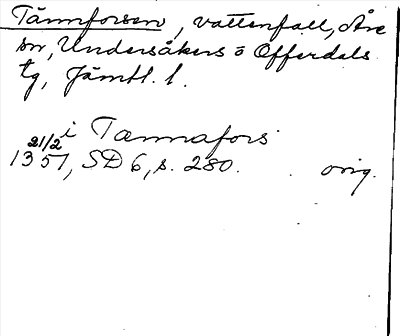 Tännforsen, vattenfall, Åre
sn, Undersåkers o Offerdals
tg, Jämtl. l.
i Tænnafors
21/2
1351, SD 6, s. 280. orig.